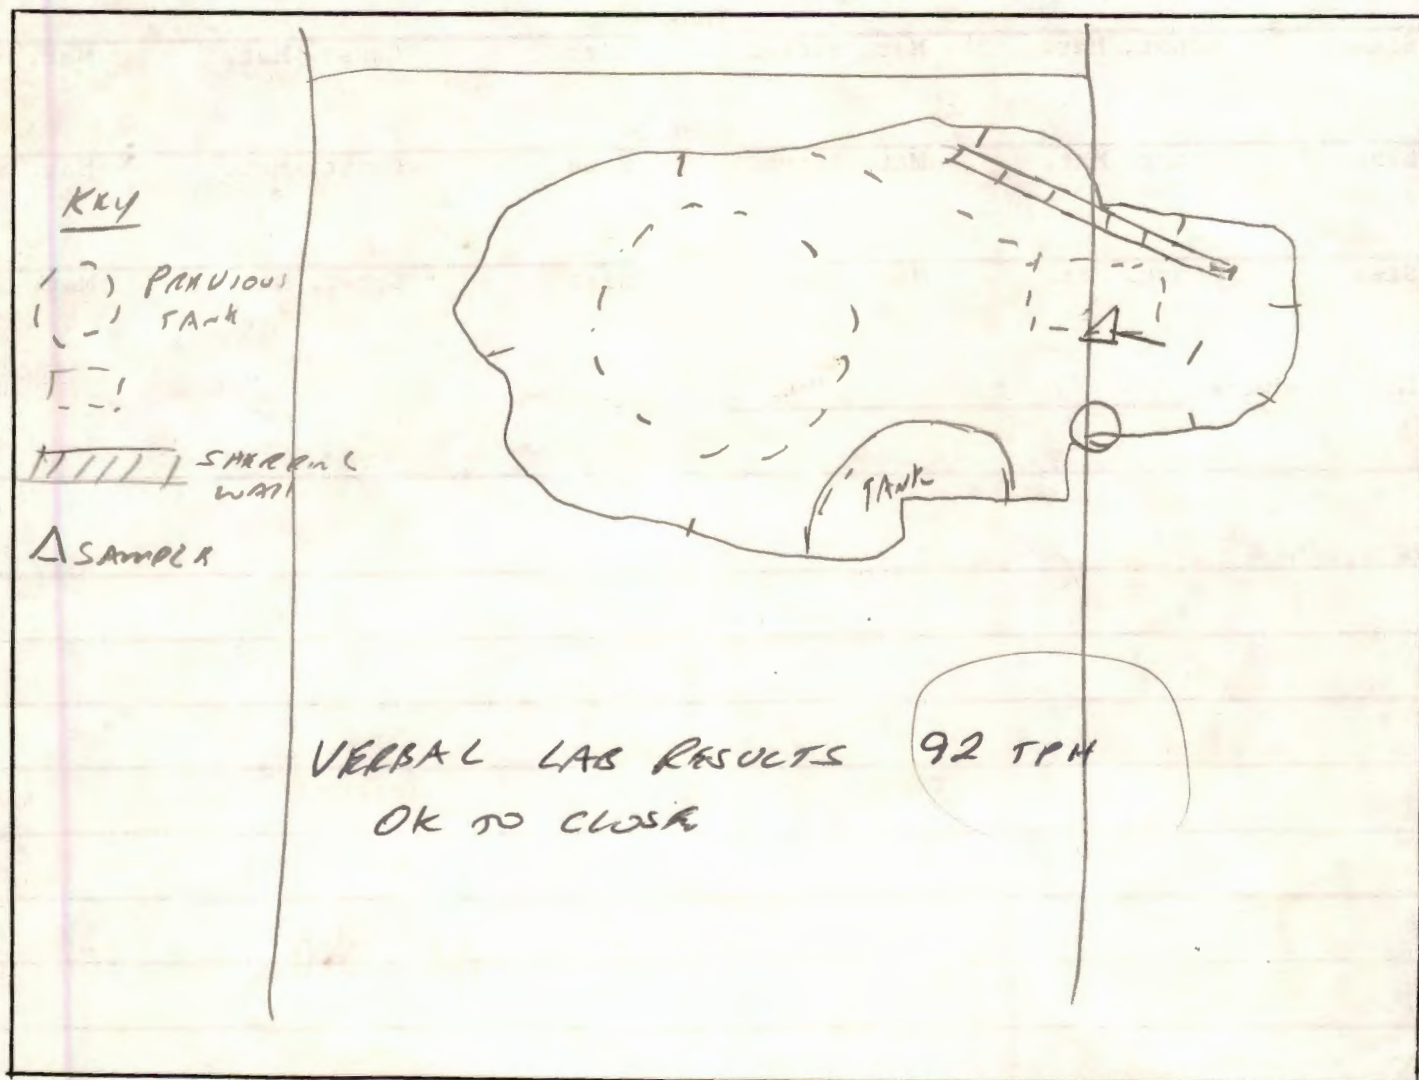 KEY
PREVIOUS
TANK
WALL
SAMPLE
TANK
VERBAL LAB RESULTS 92 TPH
OK TO CLOSE